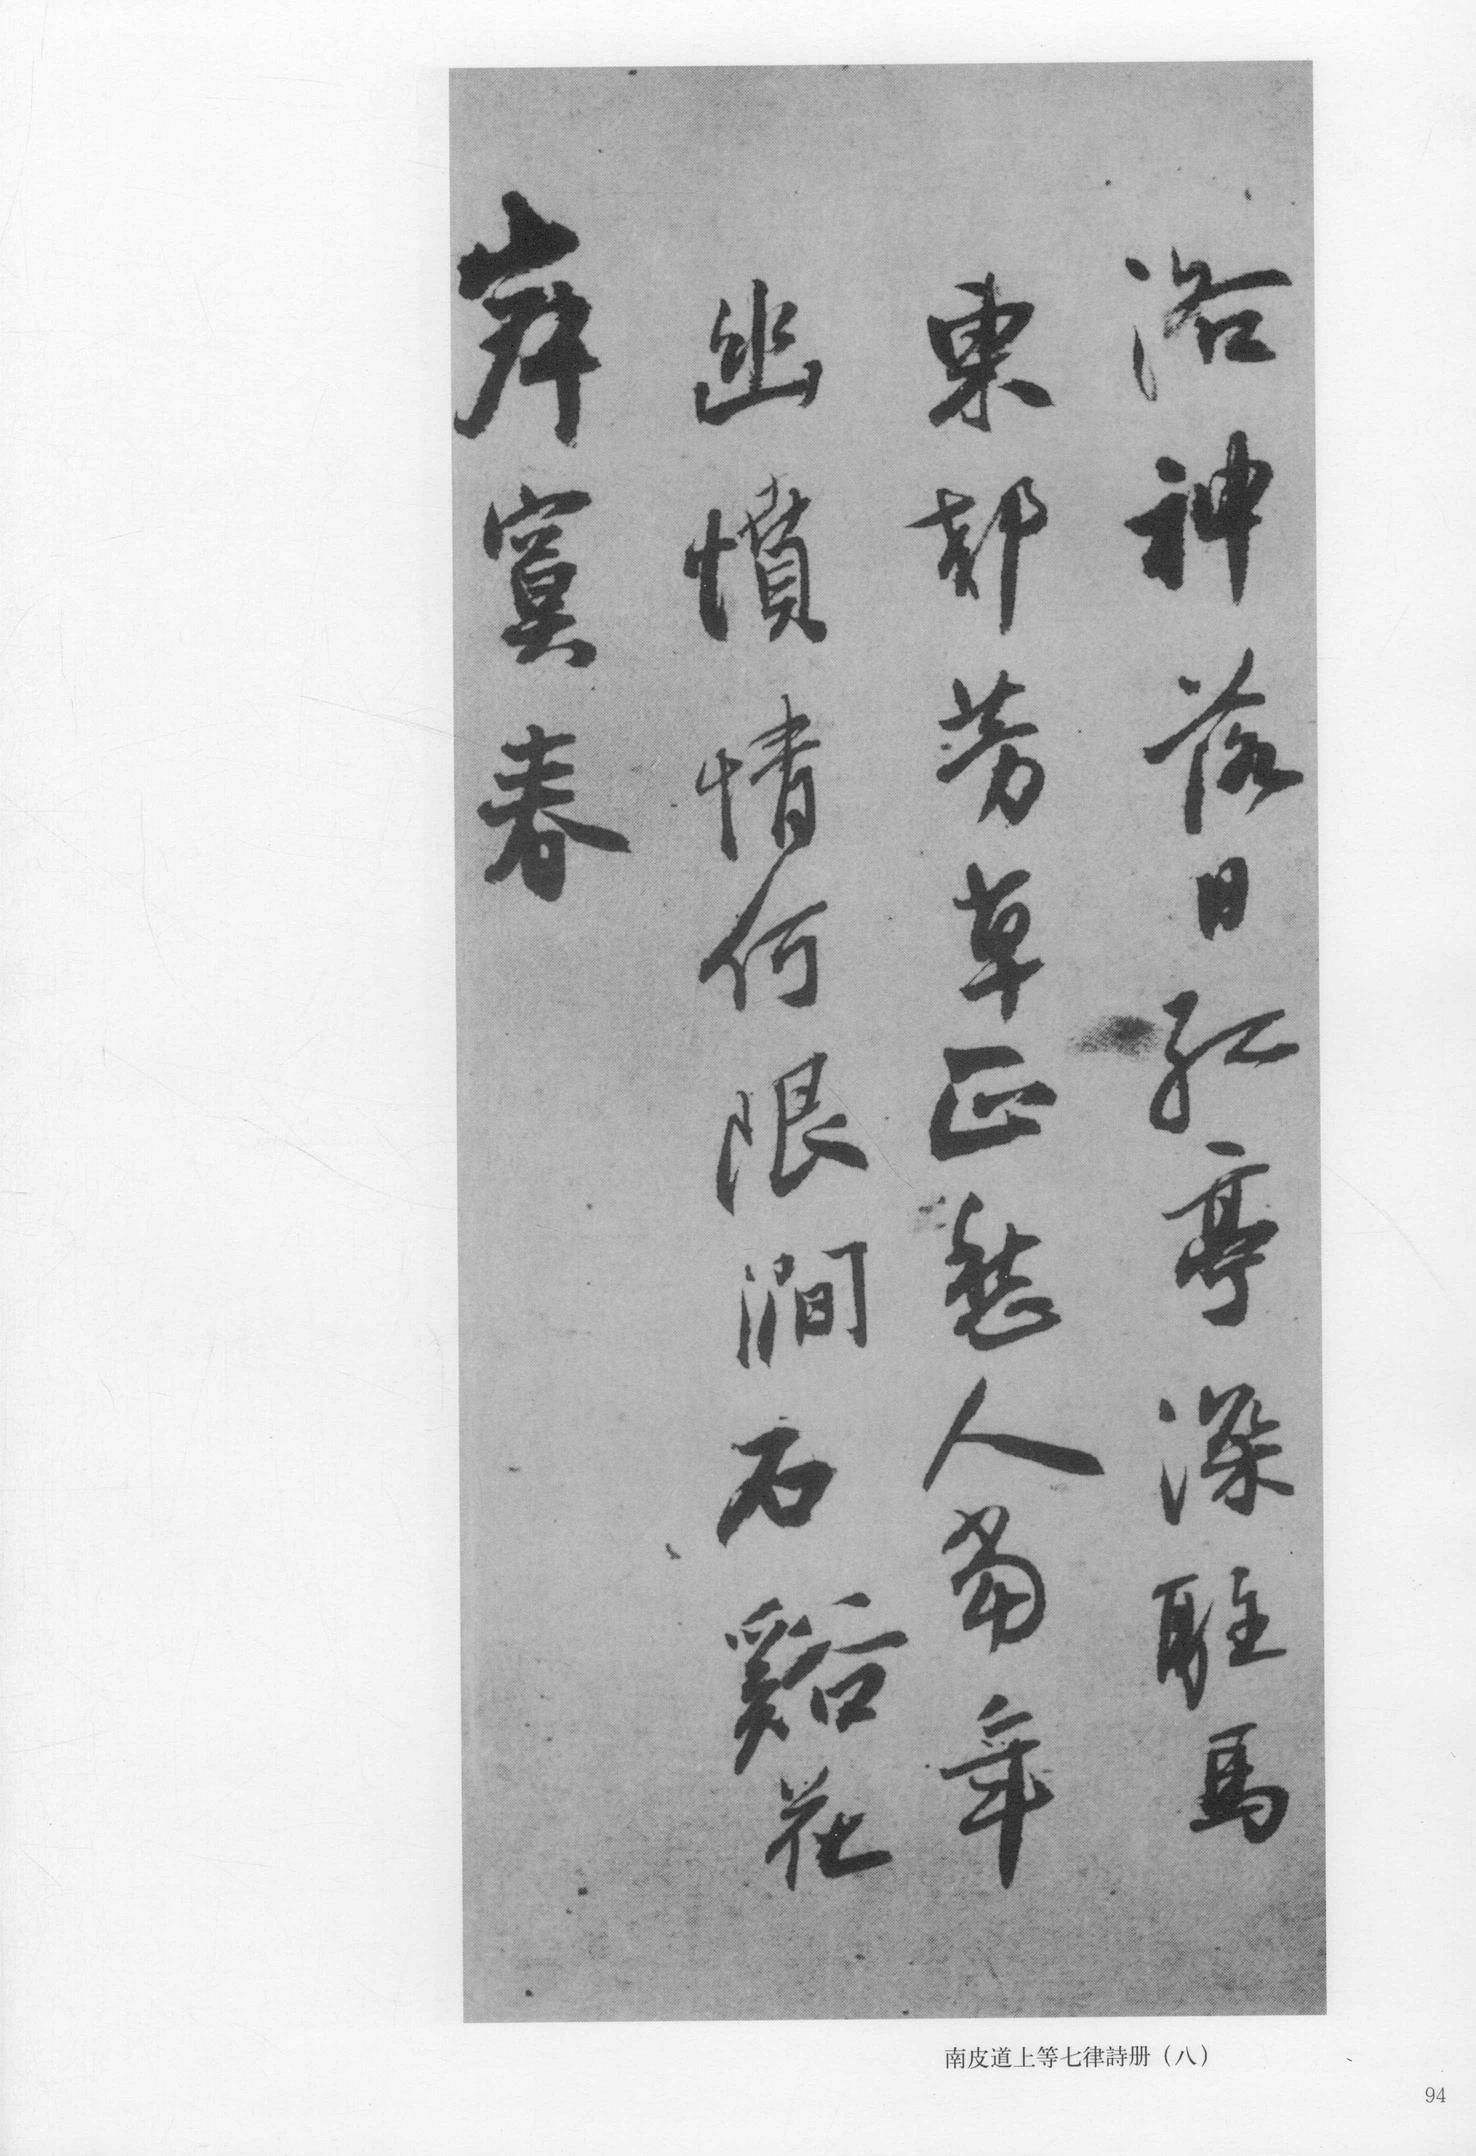 洛神落日紅亭深駐馬
東郊芳草正愁人當年
幽憤情何限澗石谿花
寞春
南皮道上等七律詩册（八）
94